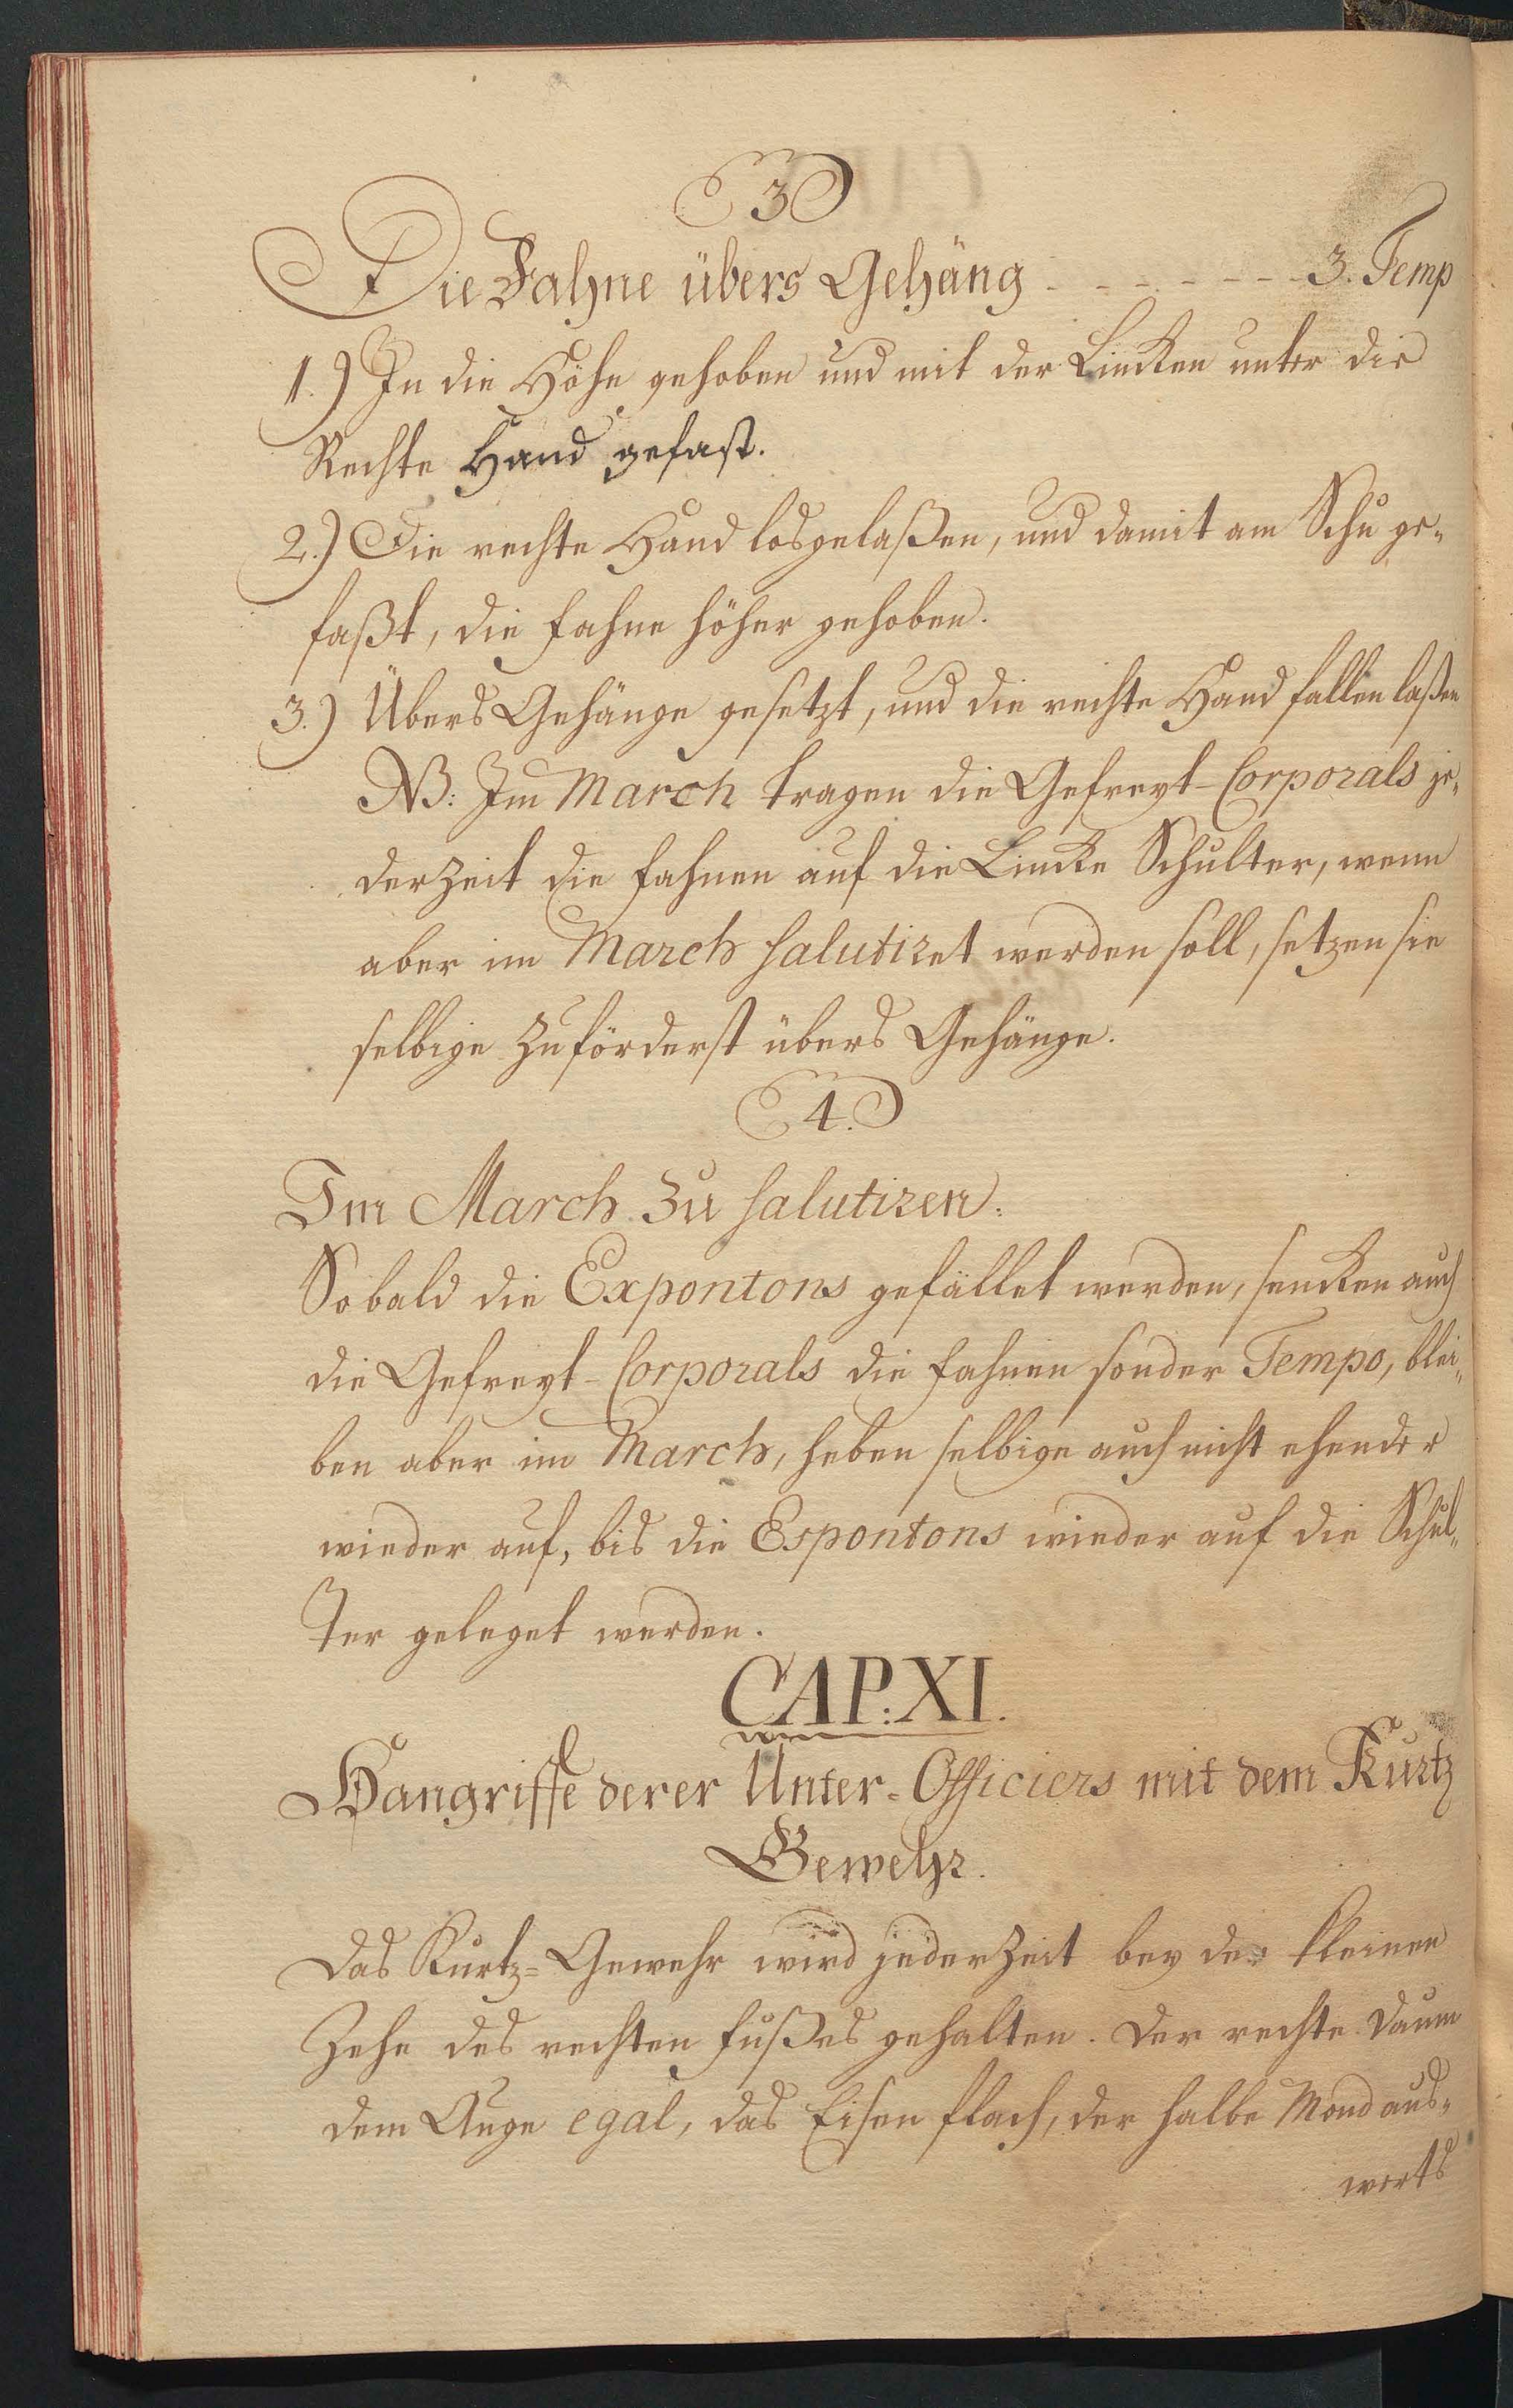 3
Die Fahne übers Gehäng - - - - - - - 3. Temp
1.) In die Höhe gehoben und mit der Lincken unter die
Rechte Hand gefast.
2.) Die rechte Hand losgelaßen, und damit am Schu ge-
faßt, die Fahne höher gehoben.
3.) Übers Gehänge gesetzt, und die rechte Hand fallen laßen
NB: Im March tragen die Gefreyt-Corporals je-
derzeit die Fahnen auf die Lincke Schulter, wenn
aber im March salutiret werden soll, setzen sie
selbige zuförderst übers Gehänge.
4.
Im March zu salutiren:
Sobald die Expontons gefället werden, sencken auch
die Gefreyt-Corporals die Fahnen sonder Tempo, blei-
ben aber im March, heben selbige auch nicht ehender
wieder auf, bis die Espontons wieder auf die Schul-
ter geleget werden.
CAP: XI.
Hangriffe derer Unter-Officiers mit dem Kurtz
Gewehr.
Das Kurtz-Gewehr wird jederzeit bey der kleinen
Zehe des rechten Fußes gehalten. Der rechte Daum
dem Auge egal, das Eisen flach, der halbe Mond aus-
werts